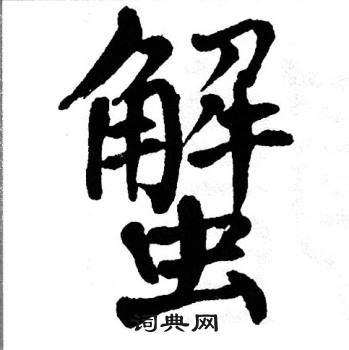 蟹
词典网